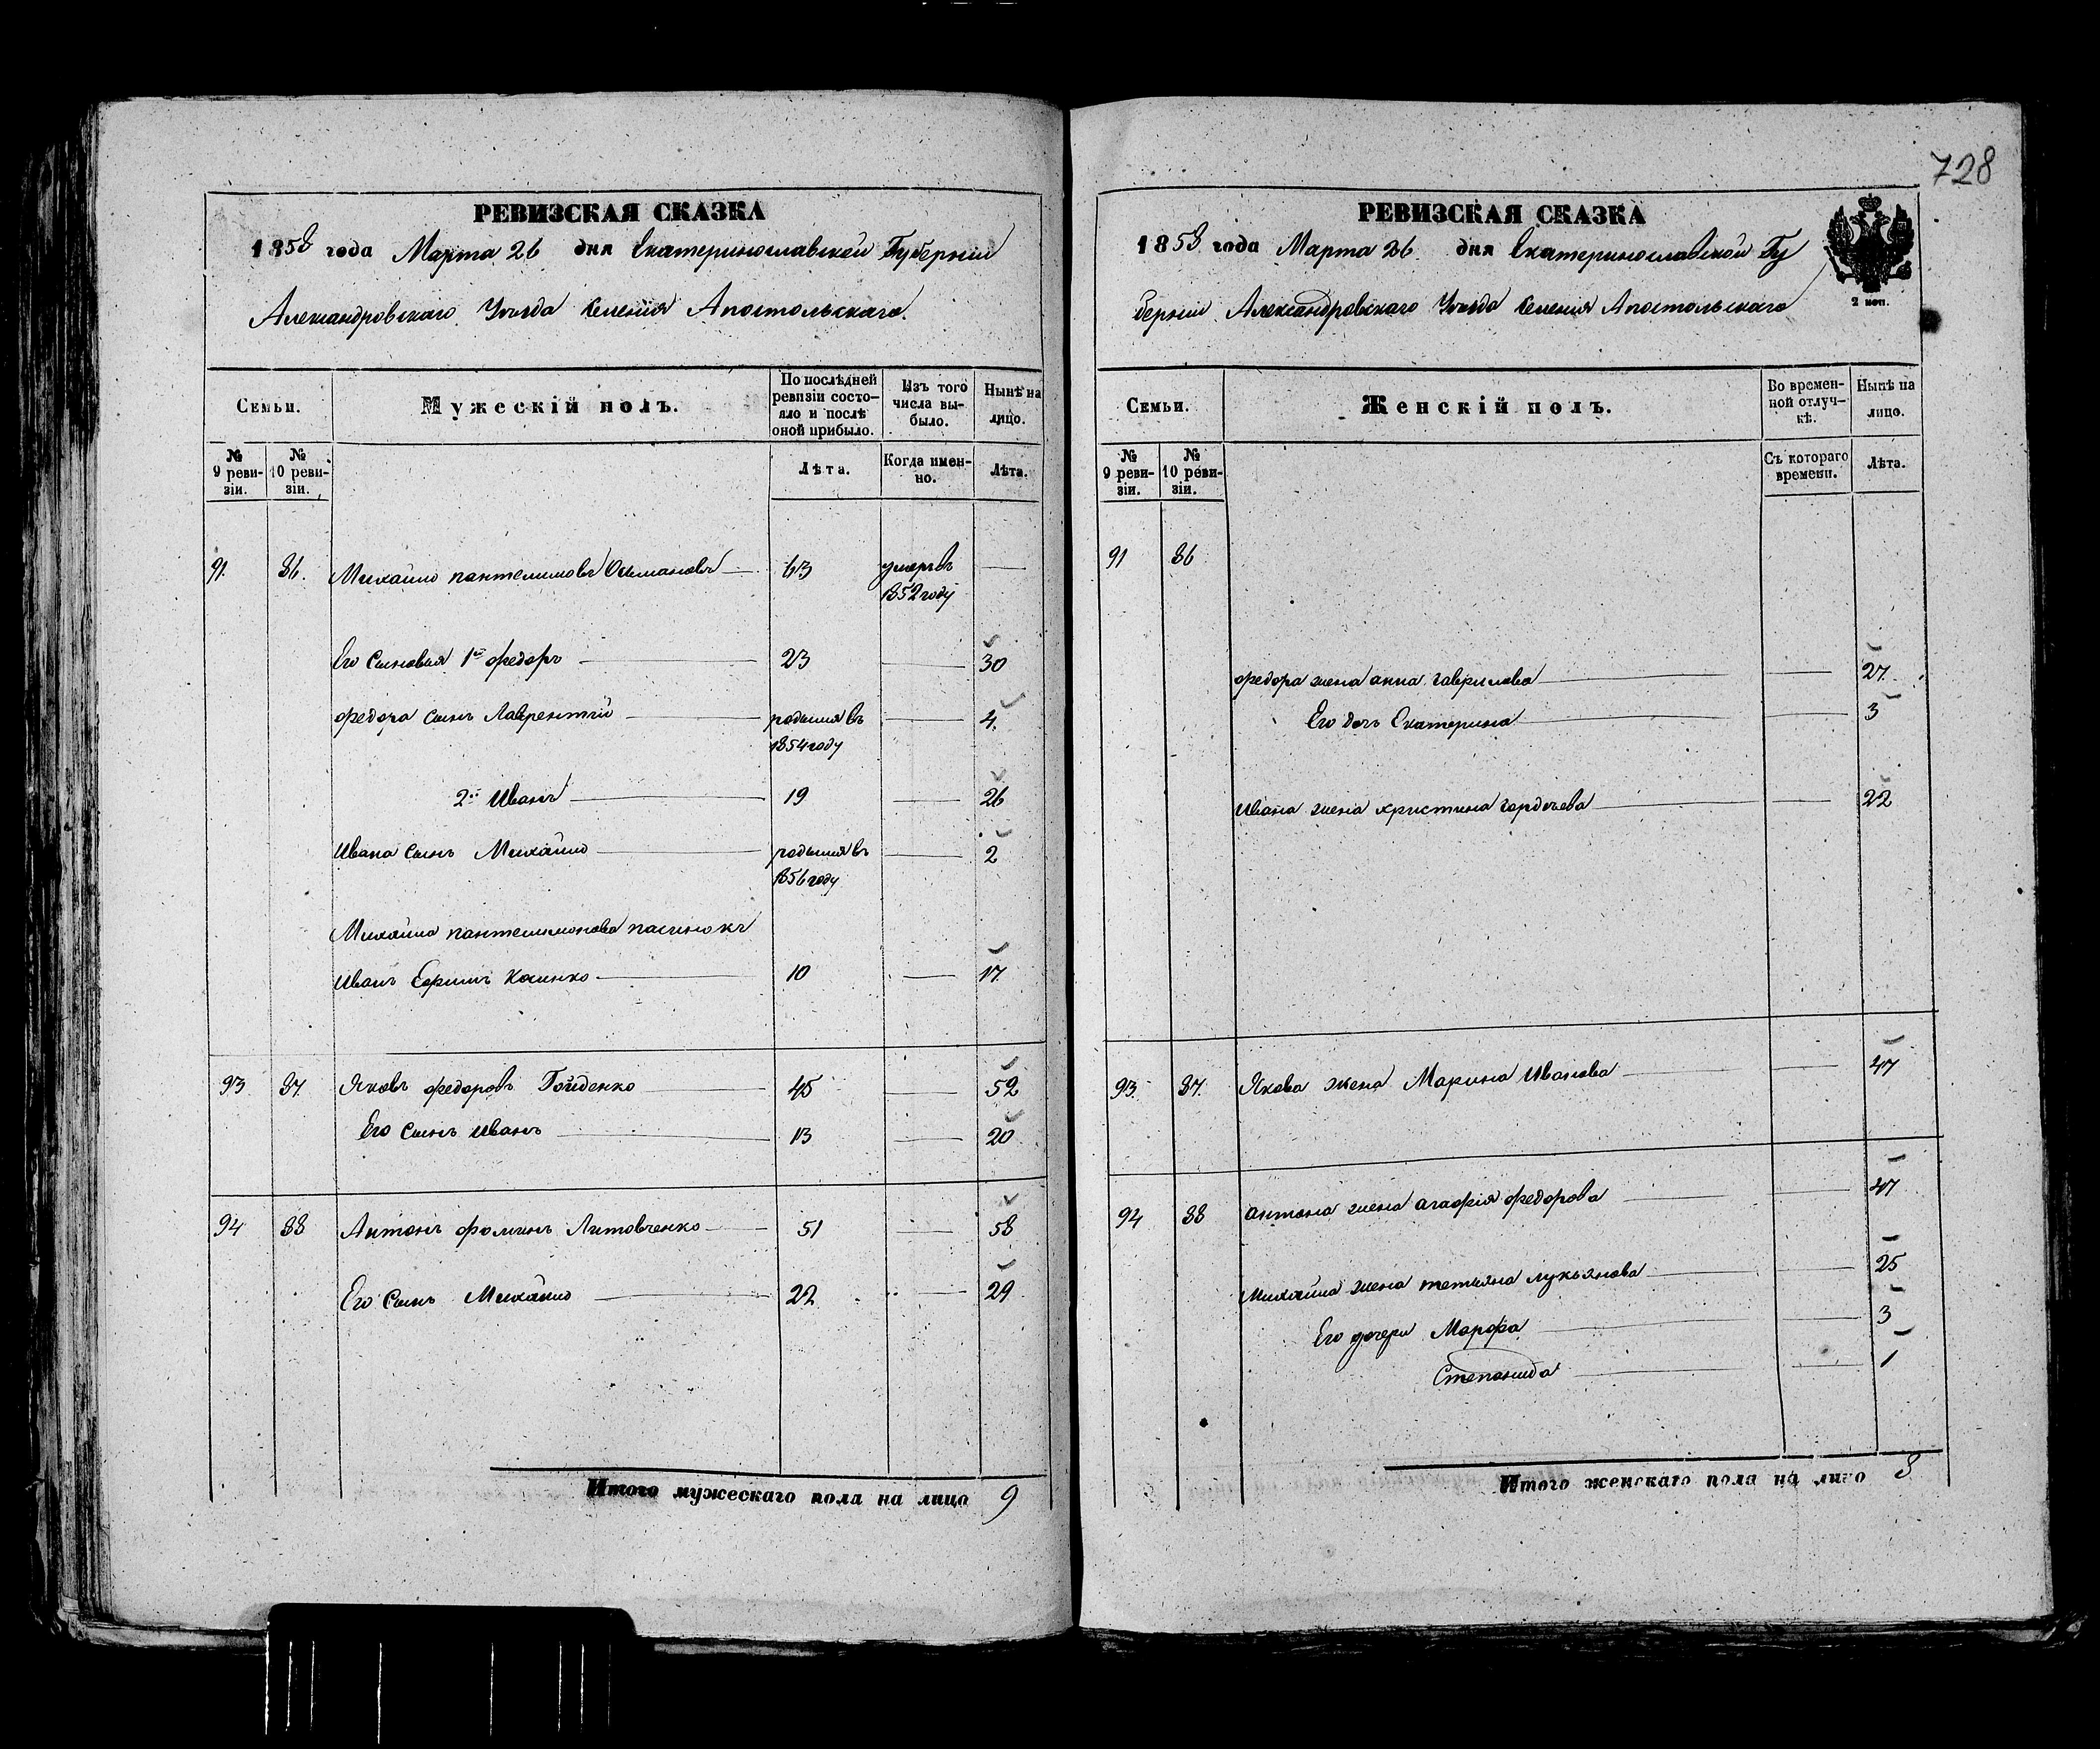 728
РЕВИЗСКАЯ СКАЗКА
1858 года Марта 26 дня Екатеринославской Губернии
Александровскаго Уезда Селения Апостольскаго.
Семьи.
Мужескій полъ.
По последней ревизіи состояло и послѣ оной прибыло.
Изъ того числа выбыло.
Нынѣ на лицо.
№ 9 ревизіи.
№ 10 ревизіи.
Лѣта.
Когда именно.
Лѣта.
91. 86. Михайло пантелимовъ 63 умеръ въ 1852 году
Его Сыновья 1й федоръ 23 30
федора сынъ Лаврентий родился въ 1854 году 4.
2й Иванъ 19 26
Ивана сынъ Михайло родился въ 1856 году 2
Михайла пантелимонова пасинокъ
Иванъ 10 17.
93 87. Яковъ федоровъ Гойденко 45 52
Его сынъ Иванъ 13 20
94 88 Антонъ фоминъ Литовченко 51 58
Его сынъ Михайло 22 29
Итого мужескаго пола на лицо 9
РЕВИЗСКАЯ СКАЗКА
1858 года Марта 26 дня Екатеринославской Гу
2 коп.
берніи Александровскаго Уезда Селения Апостольскаго
Семьи.
Женскій полъ.
Во временной отлучкѣ.
Нынѣ на лицо.
№ 9 ревизіи.
№ 10 ревизіи.
Съ котораго времени.
Лѣта.
91 86
федора жена анна гаврилова 27.
Его доч Екатерина 3
Ивана жена христина гордеева 22
93. 87. Якова жена Марина Иванова 47
94 88 антона жена агафія федорова 47
Михайла жена татьяна лукьянова 25
Его дочери Марфа 3
Степанида 1
Итого женскаго пола на лицо 8